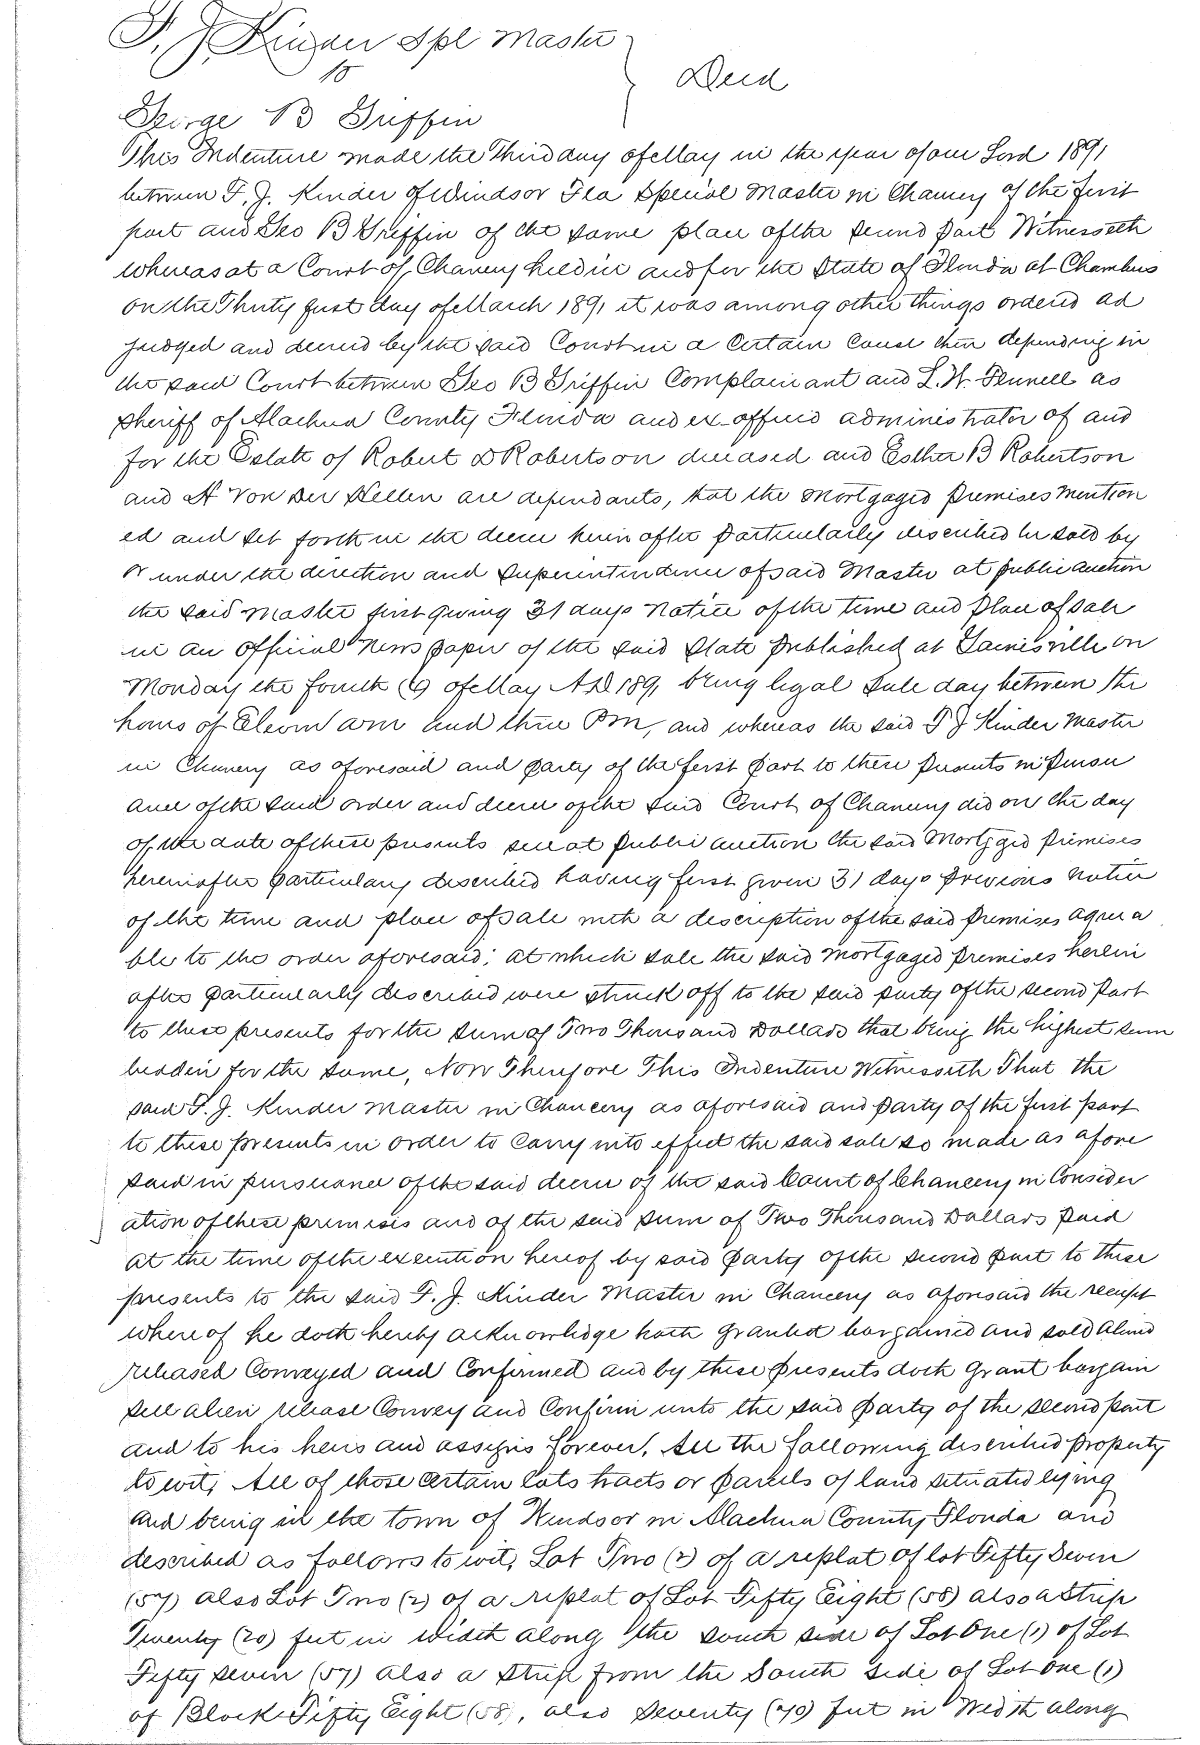 F. J. Kinder Spl Master
to
Deed
George B Griffin
This Indenture made the Third day of May in the year of our Lord 1891
between F. J. Kinder of Windsor Fla Special Master in Chancery of the first
part and Geo B Griffin of the same place of the second part Witnesseth
whereas at a Court of Chancery held in and for the State of Florida at Chambers
on the Thirty first day of March 1891 it was among other things ordered ad
judged and decreed by the said Court in a Certain Cause then depending in
the said Court between Geo B Griffin Complainant and L. W. Fennell as
Sheriff of Alachua County Florida and ex-officio administrator of and
for the Estate of Robert D Robertson deceased and Esther B Robertson
and A Von Der Hellen are dependants, that the Mortgaged Premises mention
ed and set forth in the decree herein after particularly described be sold by
or under the direction and Superintendence of said Master at public auction
the said Master first giving 31 days Notice of the time and place of sale
in an official News paper of the said State published at Gainesville on
Monday the fourth (4) of May A D 1891 being legal Sale day between the
hours of Eleven am and three Pm, and whereas the said F J Kinder Master
in Chancery as aforesaid and party of the first part to these Presents in Pursu
ance of the said order and decree of the said Court of Chancery did on the day
of the date of these presents sell at public auction the said Mortgaged Premises
hereinafter particularly described having first given 31 days Previous Notice
of the time and place of sale with a description of the said Premises agreea
ble to the order aforesaid; at which sale the said Mortgaged Premises herein
after particularly described were struck off to the said party of the second part
to these presents for the sum of Two Thousand Dollars that being the highest sum
bidden for the same, Now Therefore This Indenture Witnesseth That the
said F. J. Kinder Master in Chancery as aforesaid and Party of the first part
to these presents in order to carry into effect the said sale so made as afore
said in pursuance of the said decree of the said Court of Chancery in Consider
ation of these premises and of the said sum of Two Thousand Dollars paid
at the time of the execution hereof by said party of the second part to these
presents to the said F. J. Kinder Master in Chancery as aforesaid the receipt
where of he doth hereby acknowledge hath granted bargained and sold aliend
released Conveyed and Confirmed and by these Presents doth Grant bargain
sell alien release Convey and Confirm unto the said Party of the second part
and to his heirs and assigns forever, All the following described property
to wit; All of those certain lots tracts or parcels of land situated lying
and being in the town of Windsor in Alachua County Florida and
described as follows to wit, Lot Two (2) of a replat of lot Fifty Seven
(57) also Lot Two (2) of a replat of Lot Fifty Eight (58) also a Strip
Twenty (20) feet in width along the south side of Lot One (1) of Lot
Fifty Seven (57) also a Strip from the South side of Lot One (1)
of Block Fifty Eight (58), also Seventy (70) feet in Width along